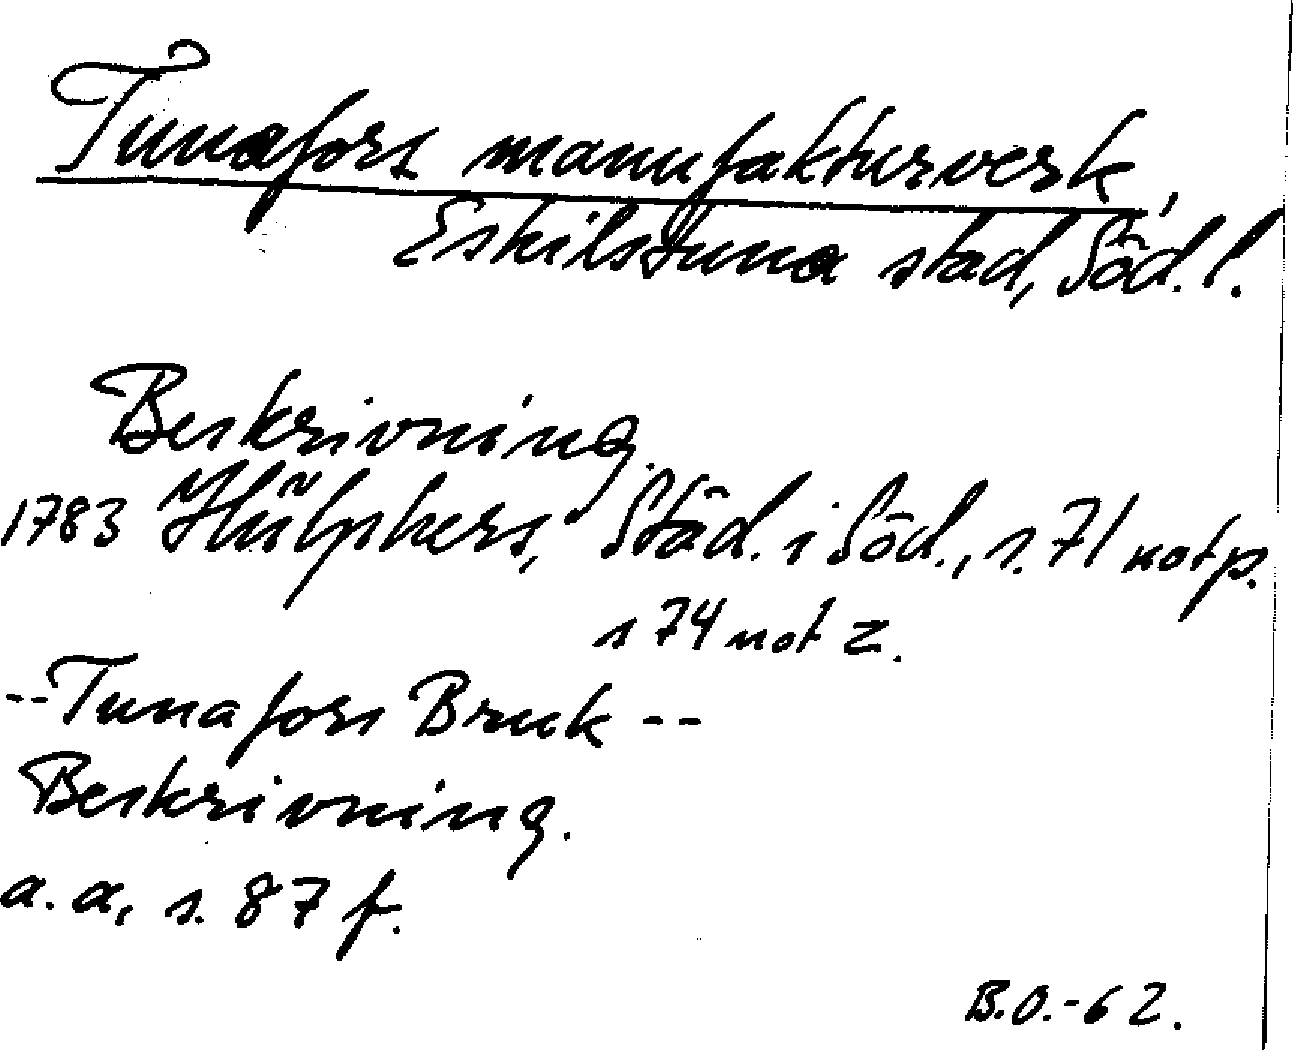 Tunafors manufakturverk,
Eskilstuna stad, Söd. l.
Beskrivning.
1783 Hülphers, Städ. i Söd., s. 71 not p.
s 74 not z.
-- Tunafors Bruk --
Beskrivning.
a. a, s. 87 f.
B.O.-62.